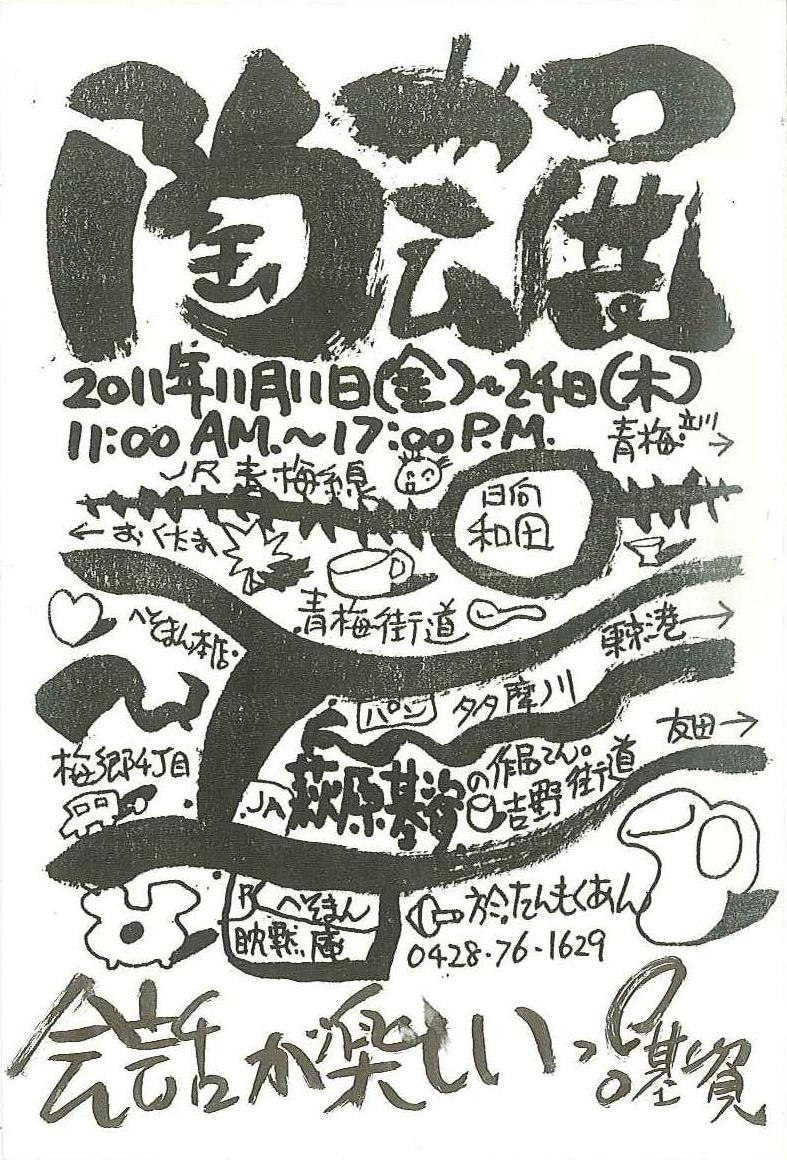 陶芸展
2011年11月11日(金)～24日(木)
11:00 AM.～17:00 P.M.
青梅 立川 →
JR 青梅線
日向
和田
← おくたま
青梅街道
へそまん本店
東京港 →
パン
多摩川
友田 →
梅郷4丁目
萩原基資
の作品てん。
吉野街道
JA
P
へそまん
眈黙庵
たんもくあん
0428・76・1629
会話が楽しいっ!
基資